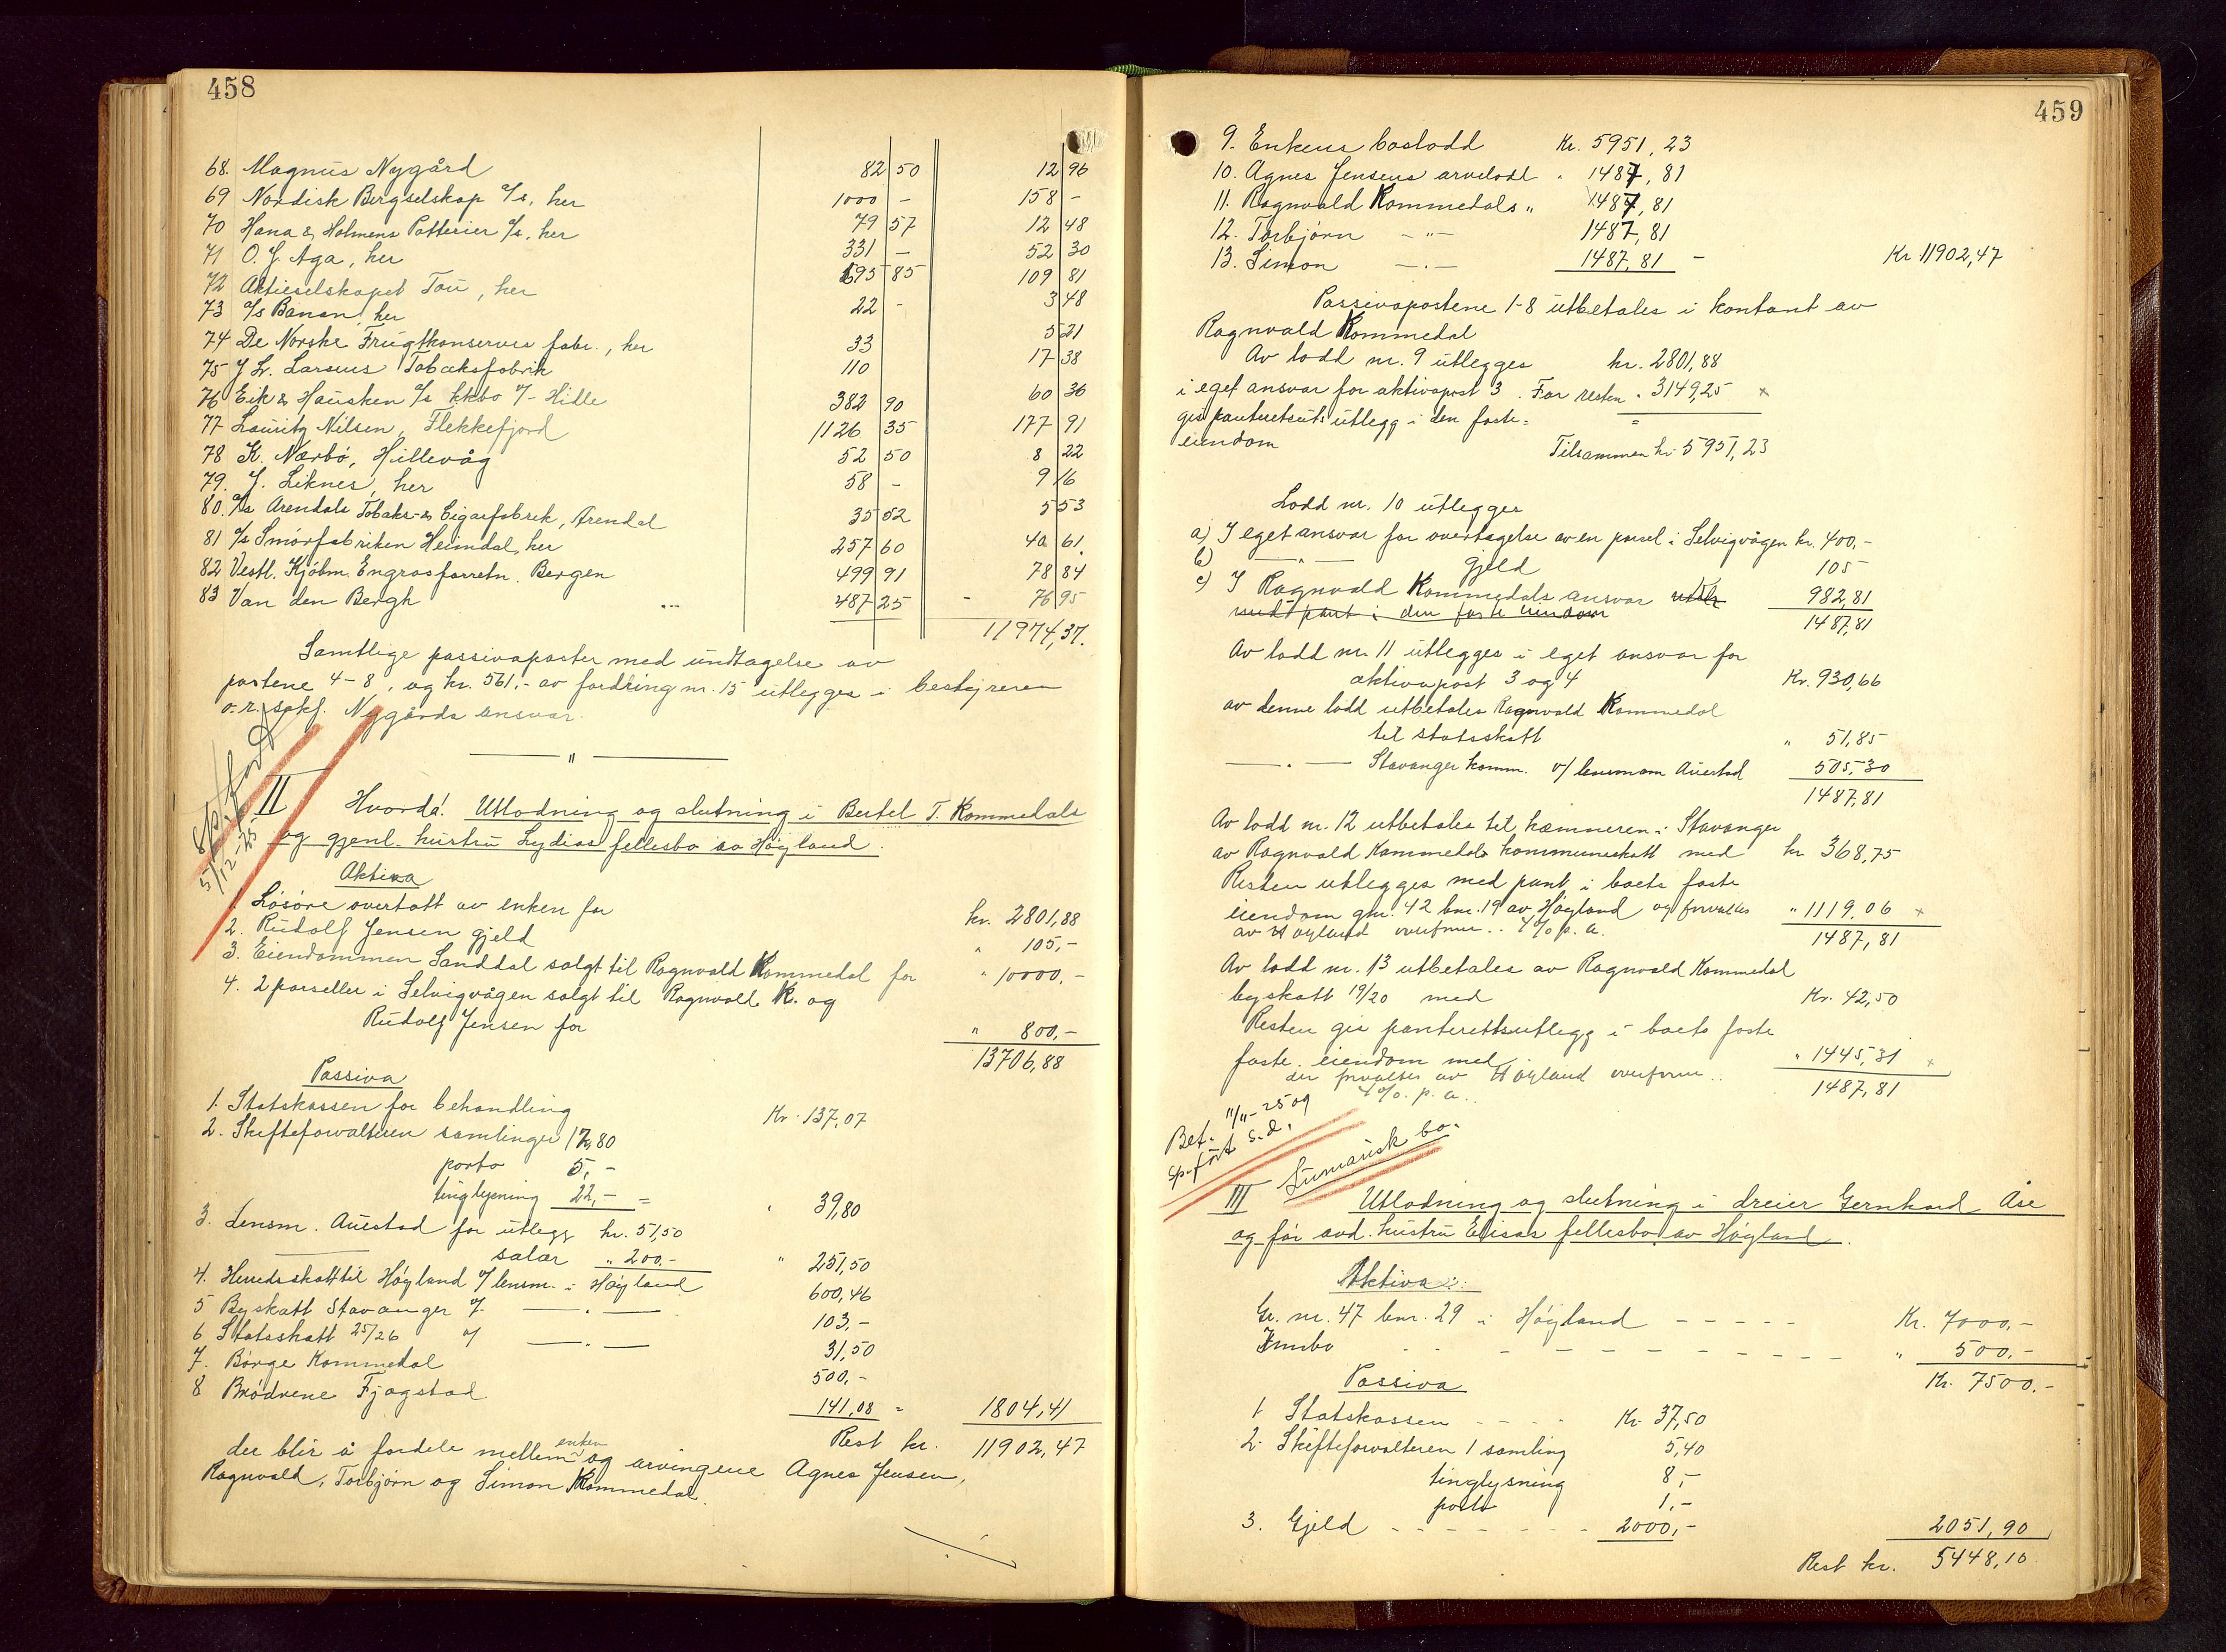 458
68. Magnus Nygård 82 50 12 96
69 Nordisk Bergselskap A/s, her 1000 - 158 -
70 Hana & Holmens Potterier A/s, her 79 57 12 48
71 O. J. Aga, her 331 - 52 30
72 Aktieselskapet Tou, her 695 85 109 81
73 A/s Banan, her 22 - 3 48
74 De Norske Frugtkonserves fabr., her 33 5 21
75 J. L. Larsens Tobaksfabrik 110 17 38
76 Eik & Hausken A/s kkbo v/- Hille 382 90 60 36
77 Lauritz Nilsen, Flekkefjord 1126 35 177 91
78 K. Nærbø, Hillevåg 52 50 8 22
79. J. Liknes, her 58 - 9 16
80. A/s Arendals Tobaks- & Cigarfabrik, Arendal 35 52 5 53
81 A/s Smørfabriken Heimdal, her 257 60 40 61
82 Vestl. Kjøbm. Engrosforretn. Bergen 499 91 78 84
83 Van den Bergh 487 25 - 76 95
11974,37.
Samtlige passivaposter med undtagelse av
postene 4-8, og kr. 561,- av fordring nr. 15 utlegges i bestyreren
o.r. sakf. Nygårds ansvar.
sp. ført
5/12-25
II Hvorda! Utlodning og slutning i Bertel T. Kommedals
og gjenl. hustru Lydias fellesbo av Høyland.
Aktiva
1. Løsøre overtatt av enken for kr. 2801,88
2. Rudolf Jensen gjeld " 105,-
3. Eiendommen Sanddal solgt til Ragnvald Kommedal for " 10000,-
4. 2 parseller i Selvigvågen solgt til Ragnvald K. og
Rudolf Jensen for " 800,-
13706,88
Passiva
1. Statskassen for behandling Kr. 137,07
2. Skifteforvalteren samlinger 12,80
porto 5,-
tinglysning 22,- = " 39,80
3. Lensm. Auestad for utlegg kr. 51,50
salær " 200,- " 251,50
4. Herredsskatt til Høyland v/ lensm. i Høyland 600,46
5 Byskatt Stavanger v/. — " — 103,-
6 Statsskatt 25/26 v/ — " — 31,50
7. Børge Kommedal 500,-
8 Brødrene Fjogstad 141,08 = 1804,41
Rest kr. 11902,47
der blir å fordele mellem enken og arvingene Agnes Jensen,
Ragnvald, Torbjørn og Simon Kommedal.
459
9. Enkens boslodd Kr. 5951,23
10. Agnes Jensens arvelodd " 1487,81
11. Ragnvald Kommedals " 1487,81
12. Torbjørn - " - 1487,81
13. Simon - " - 1487,81 - Kr 11902,47
Passivapostene 1-8 utbetales i kontant av
Ragnvald Kommedal
Av lodd nr. 9 utlegges kr. 2801,88
i eget ansvar for aktivapost 3. For resten " 3149,25 x
gis panteretsuts utlegg i den faste =
eiendom Tilsammen kr. 5951,23
Lodd nr. 10 utlegges
a) I eget ansvar for overtagelse av en parsel i Selvigvågen kr. 400,-
b) — " — gjeld 105 -
c) I Ragnvald Kommedals ansvar 982,81
med pant i den faste eiendom 1487,81
Av lodd nr. 11 utlegges i eget ansvar for
aktivapost 3 og 4 Kr. 930,66
av denne lodd utbetales Ragnvald Kommedal
til statsskatt " 51,85
— " — Stavanger komm. v/ lensmann Auestad 505,30
1487,81
Av lodd nr. 12 utbetales til kæmneren i Stavanger
av Ragnvald Kommedals kommuneskatt med kr 368,75
Resten utlegges med pant i boets faste
eiendom gnr. 42 bnr. 19 av Høyland og forvaltes " 1119,06 x
av Høyland overform. . 4 % p.a. 1487,81
Av lodd nr. 13 utbetales av Ragnvald Kommedal
byskatt 19/20 med Kr. 42,50
Resten gis panterettsutlegg i boets faste
faste eiendom med " 1445,31 x
der forvaltes av Høyland overform.. 1487,81
4 %. p. a..
Bet. 11/11-25 og
sp. ført s.d.
Summarisk bo.
III Utlodning og slutning i dreier Gernhard Åse
og før avd. hustru Elisas fellesbo av Høyland.
Aktiva:
Gr. nr. 47 bnr. 29 i Høyland - - - - - Kr. 7000,-
Innbo - - - - - - - - - - " 500,-
Kr. 7500,-
Passiva
1 Statskassen - - - - Kr. 37,50
2. Skifteforvalteren 1 samling 5,40
tinglysning 8,-
porto 1,-
3. Gjeld - - - - - - - 2000,- 2051,90
Rest kr. 5448,10